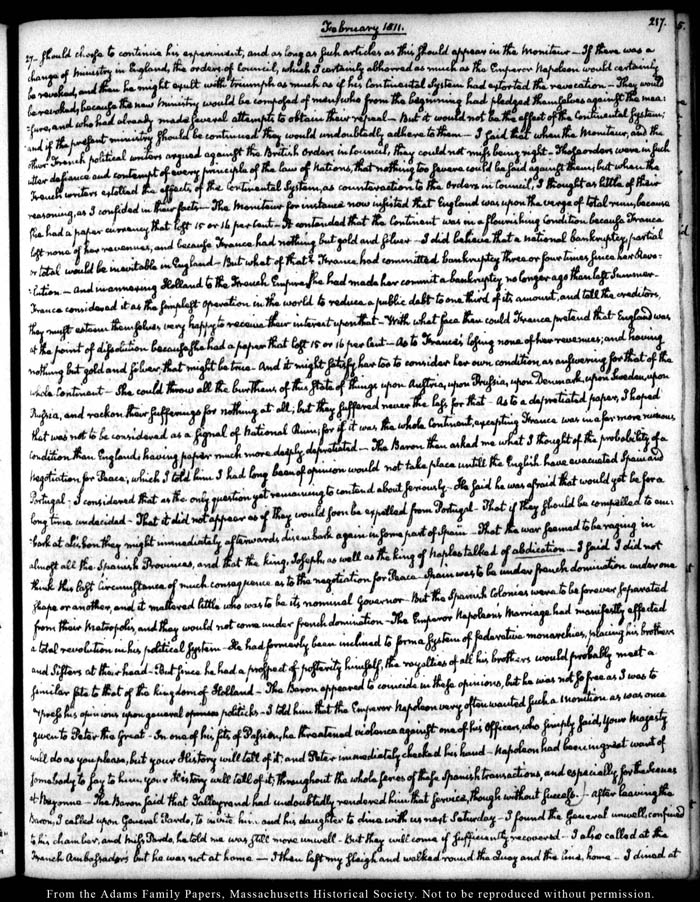 February 1811.
217.
27. should choose to continue his experiment, and as long as such articles as this should appear in the Moniteur — If there was a
change of Ministry in England, the orders of Council, which I certainly abhorred as much as the Emperor Napoleon would certainly
be revoked, and then he might exult with triumph as much as if his Continental System had extorted the revocation — They would
be revoked, because the new Ministry would be composed of men, who from the beginning had pledged themselves against the mea-
:sure, and who had already made several attempts to obtain their repeal — But it would not be the effect of the Continental System;
and if the present ministry should be continued they would undoubtedly adhere to them — I said that when the Moniteur, and the
other French political writers argued against the British Orders in Council, they could not miss being right — Those orders were in such
utter defiance and contempt of every principle of the law of Nations, that nothing too severe could be said against them; but when the
French writers extolled the effects of the Continental System, as counteraction to the Orders in Council, I thought as little of their
reasoning, as I confided in their facts — The Moniteur for instance now insisted that England was upon the verge of total ruin, because
she had a paper currency that lost 15 or 16 per Cent — It contended that the Continent was in a flourishing Condition because France
lost none of her revenues, and because France had nothing but gold and silver — I did believe that a national bankruptcy, partial
or total would be inevitable in England — But what of that? France had committed bankruptcy three or four times since her Revo-
:lution — And in annexing Holland to the French Empire, she had made her commit a bankruptcy no longer ago than last Summer —
France considered it as the simplest operation in the world to reduce a public debt to one third of its amount, and tell the creditors,
they might esteem themselves very happy to receive their interest upon that — With what face then could France pretend that England was
at the point of dissolution because she had a paper that lost 15 or 16 per Cent — As to France's losing none of her revenues; and having
nothing but gold and silver, that might be true — And it might satisfy her too to consider her own condition, as answering for that of the
whole Continent — She could throw all the burthens of this State of things upon Austria, upon Prussia, upon Denmark, upon Sweden, upon
Russia, and reckon their sufferings for nothing at all; but they suffered never the less for that — As to a depretiated paper, I hoped
that was not to be considered as a signal of National Ruin; for if it was, the whole Continent, excepting France was in a far more ruinous
Condition than England; having paper much more deeply depretiated — The Baron then asked me what I thought of the probability of a
Negotiation for Peace; which I told him I had long been of opinion would not take place untill the English have evacuated Spain and
Portugal — I considered that as the only question yet remaining to contend about seriously — He said he was afraid that would yet be for a
long time undecided — That it did not appear as if they would soon be expelled from Portugal — That if they should be compelled to em-
:bark at Lisbon they might immediately afterwards disembark again in some part of Spain — That the war seemed to be raging in
almost all the Spanish Provinces, and that the king, Joseph, as well as the king of Naples talked of abdication — I said I did not
think this last circumstance of much consequence as to the negotiation for Peace — Spain was to be under french domination under one
shape or another, and it mattered little who was to be its nominal Governor — But the Spanish Colonies were to be forever separated
from their Metropolis, and they would not come under french domination — The Emperor Napoleon's Marriage had manifestly effected
a total revolution in his political System — He had formerly been inclined to form a System of federative monarchies, placing his brothers
and sisters at their head — But since he had a prospect of posterity himself, the royalties of all his brothers would probably meet a
similar fate to that of the kingdom of Holland — The Baron appeared to coincide in these opinions, but he was not so free as I was to
express his opinions upon general politicks — I told him that the Emperor Napoleon very often wanted such a monition as was once
given to Peter the Great — In one of his fits of Passion, he threatened violence against one of his Officers, who simply said, Your Majesty
will do as you please, but your History will tell of it; and Peter immediately checked his hand — Napoleon had been in great want of
somebody to say to him, your History will tell of it; throughout the whole series of these Spanish transactions, and especially for the Scenes
at Bayonne — The Baron said that Talleyrand had undoubtedly rendered him that service, though without success. / After leaving the
Baron, I called upon General Pardo, to invite him and his daughter to dine with us next Saturday — I found the General unwell, confined
to his chamber, and Miss Pardo, he told me was still more unwell — But they will come if sufficiently recovered — I also called at the
French Ambassador's but he was not at home — I then left my sleigh and walked round the Quay and the line, home — I dined at
From the Adams Family Papers, Massachusetts Historical Society. Not to be reproduced without permission.